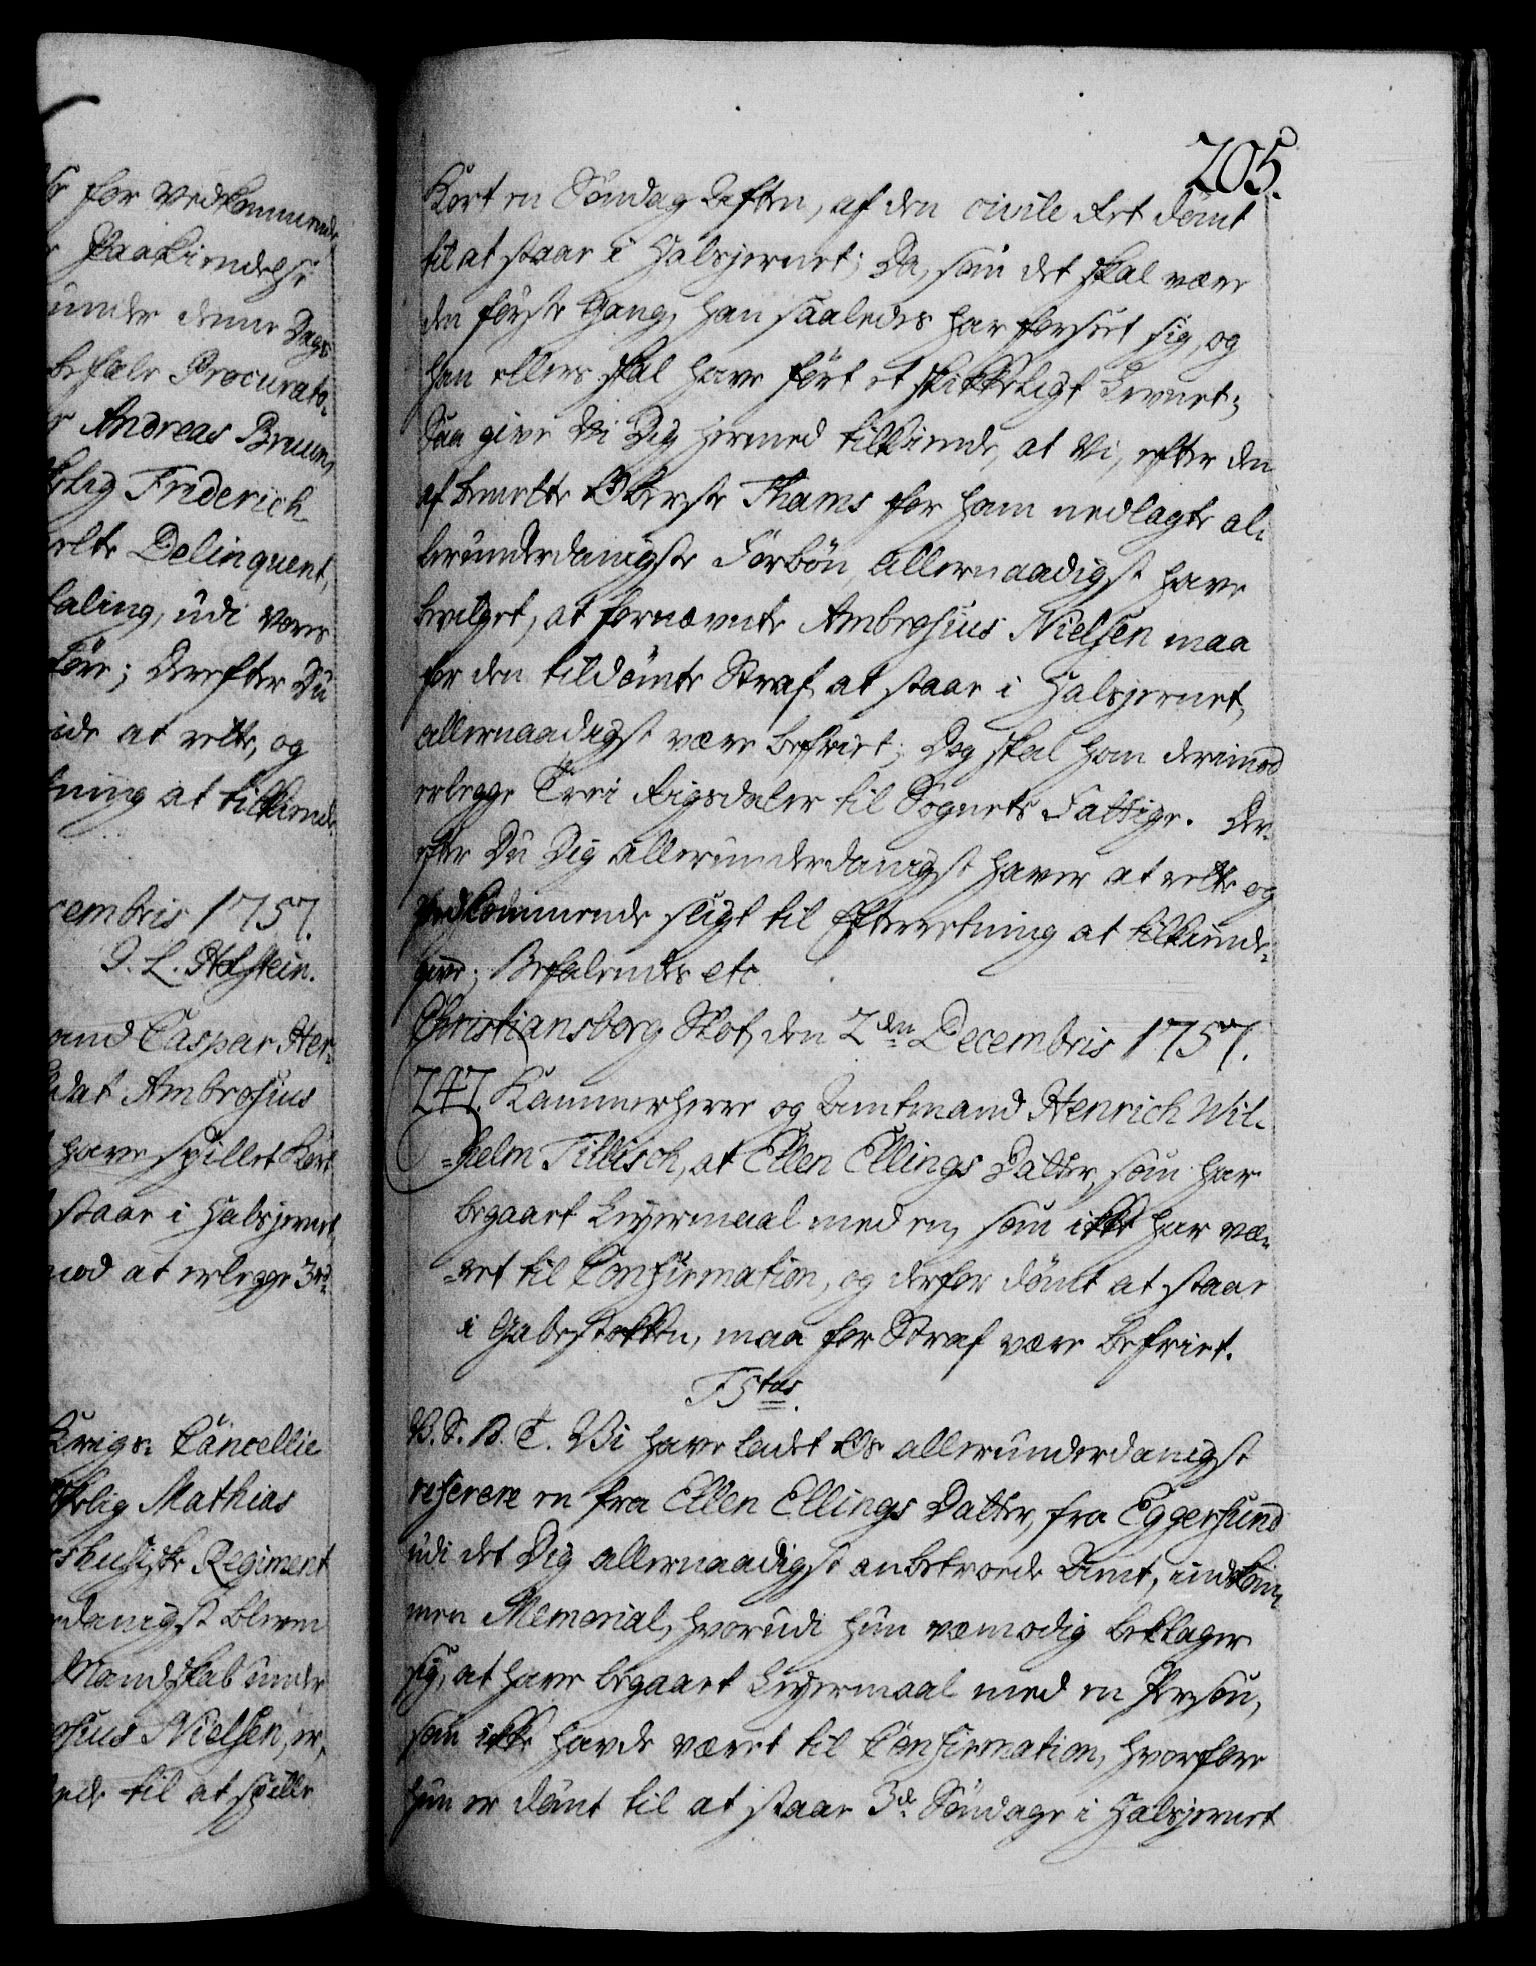 for Vedkommende
Paakiendelse
under denne Dags
befale Procurato-
Andreas Bruun,
Friderich
Delinquent,
taling, udi Vores
före; Derefter Du
at rette, og
ning at tilkiende-
cembris 1757.
J. L. Holstein.
Caspar Her-
dat Ambrosius
have spillet Kort
staae i Halsjernet,
mod at erlegge 3 rd
Krigs- Cancellie
Mathias
Regiment
danigst bleven
Mandskab under
osius Nielsen, er,
til at spille
205.
Kort en Söndag Aften, af den civile Ret dömt
til at staae i Halsjernet; Da, som det skal være
den förste Gang, han saaledes har forseet sig, og
han ellers skal have fört et skikkeligt Levnet;
Saa give Vi Dig hermed tilkiende, at Vi, efter den
af bemelte Oberste Thams for ham nedlagte al-
lerunderdanigste Forbön, allernaadigst have
bevilget, at fornævnte Ambrosius Nielsen maa
for den tildömte Straf, at staae i Halsjernet,
allernaadigst være befriet; Dog skal han derimod
erlegge Trei Rigsdaler til Sognets Fattige. Der-
efter Du Dig allerunderdanigst haver at rette og
Vedkommende sligt til Efterretning at tilkiende-
give; Befalendes etc.
Christiansborg Slot, den 2den Decembris 1757.
247. Kammerherre og Amtmand Henrich Wil-
-helm Tillisch, at Ellen Ellings Datter, som har
begaaet Leyermaal med en, som ikke har væ-
-ret til Confirmation, og derfor dömt at staae
i Gabestokken, maa for Straf være befriet.
F5tus.
V. S. B. T. Vi have ladet Os allerunderdanigst
referere en fra Ellen Ellings Datter, fra Eggersund
udi det Dig allernaadigst anbetroede Amt, indkom-
men Memorial, hvorudi hun vemodig beklager
sig, at have begaaet Leyermaal med en Person,
som ikke havde været til Confirmation, hvorfore
hun er dömt til at staae 3de Söndage i Halsjernet